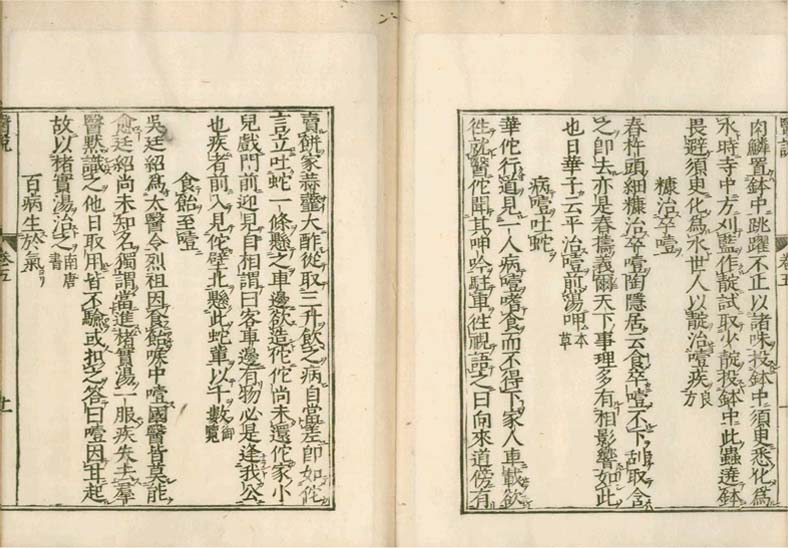 肉鱗置鉢中跳躍不止以諸味投鉢中須臾悉化爲
水時寺中方刈藍作靛試取少靛投鉢中此蟲遶鉢
畏避須臾化爲水世人以靛治噎疾良方
糠治卒噎
舂杵頭細糠治卒噎陶隱居云食卒噎不下刮取含
之即去亦是舂擣義爾天下事理多有相影響如此
也日華子云平治噎煎湯呷本草
病噎吐蛇
華佗行道見一人病噎嗜食而不得下家人車載欲
徃就醫佗聞其呻吟駐車徃視語之曰向來道傍有
賣餅家蒜虀大酢從取三升飲之病自當差即如佗
言立吐蛇一條懸之車邊欲造佗佗尚未還佗家小
兒戲門前迎見自相謂曰客車邊有物必是逢我公
也疾者前入見佗壁北懸此蛇輩以千數御覽
食飴至噎
吳廷紹爲太醫令烈祖因食飴喉中噎國醫皆莫能
愈廷紹尚未知名獨謂當進楮實湯一服疾失去羣
醫黙識之他日取用皆不驗或扣之答曰噎因甘起
故以楮實湯治之南唐書
百病生於氣
醫說
卷五